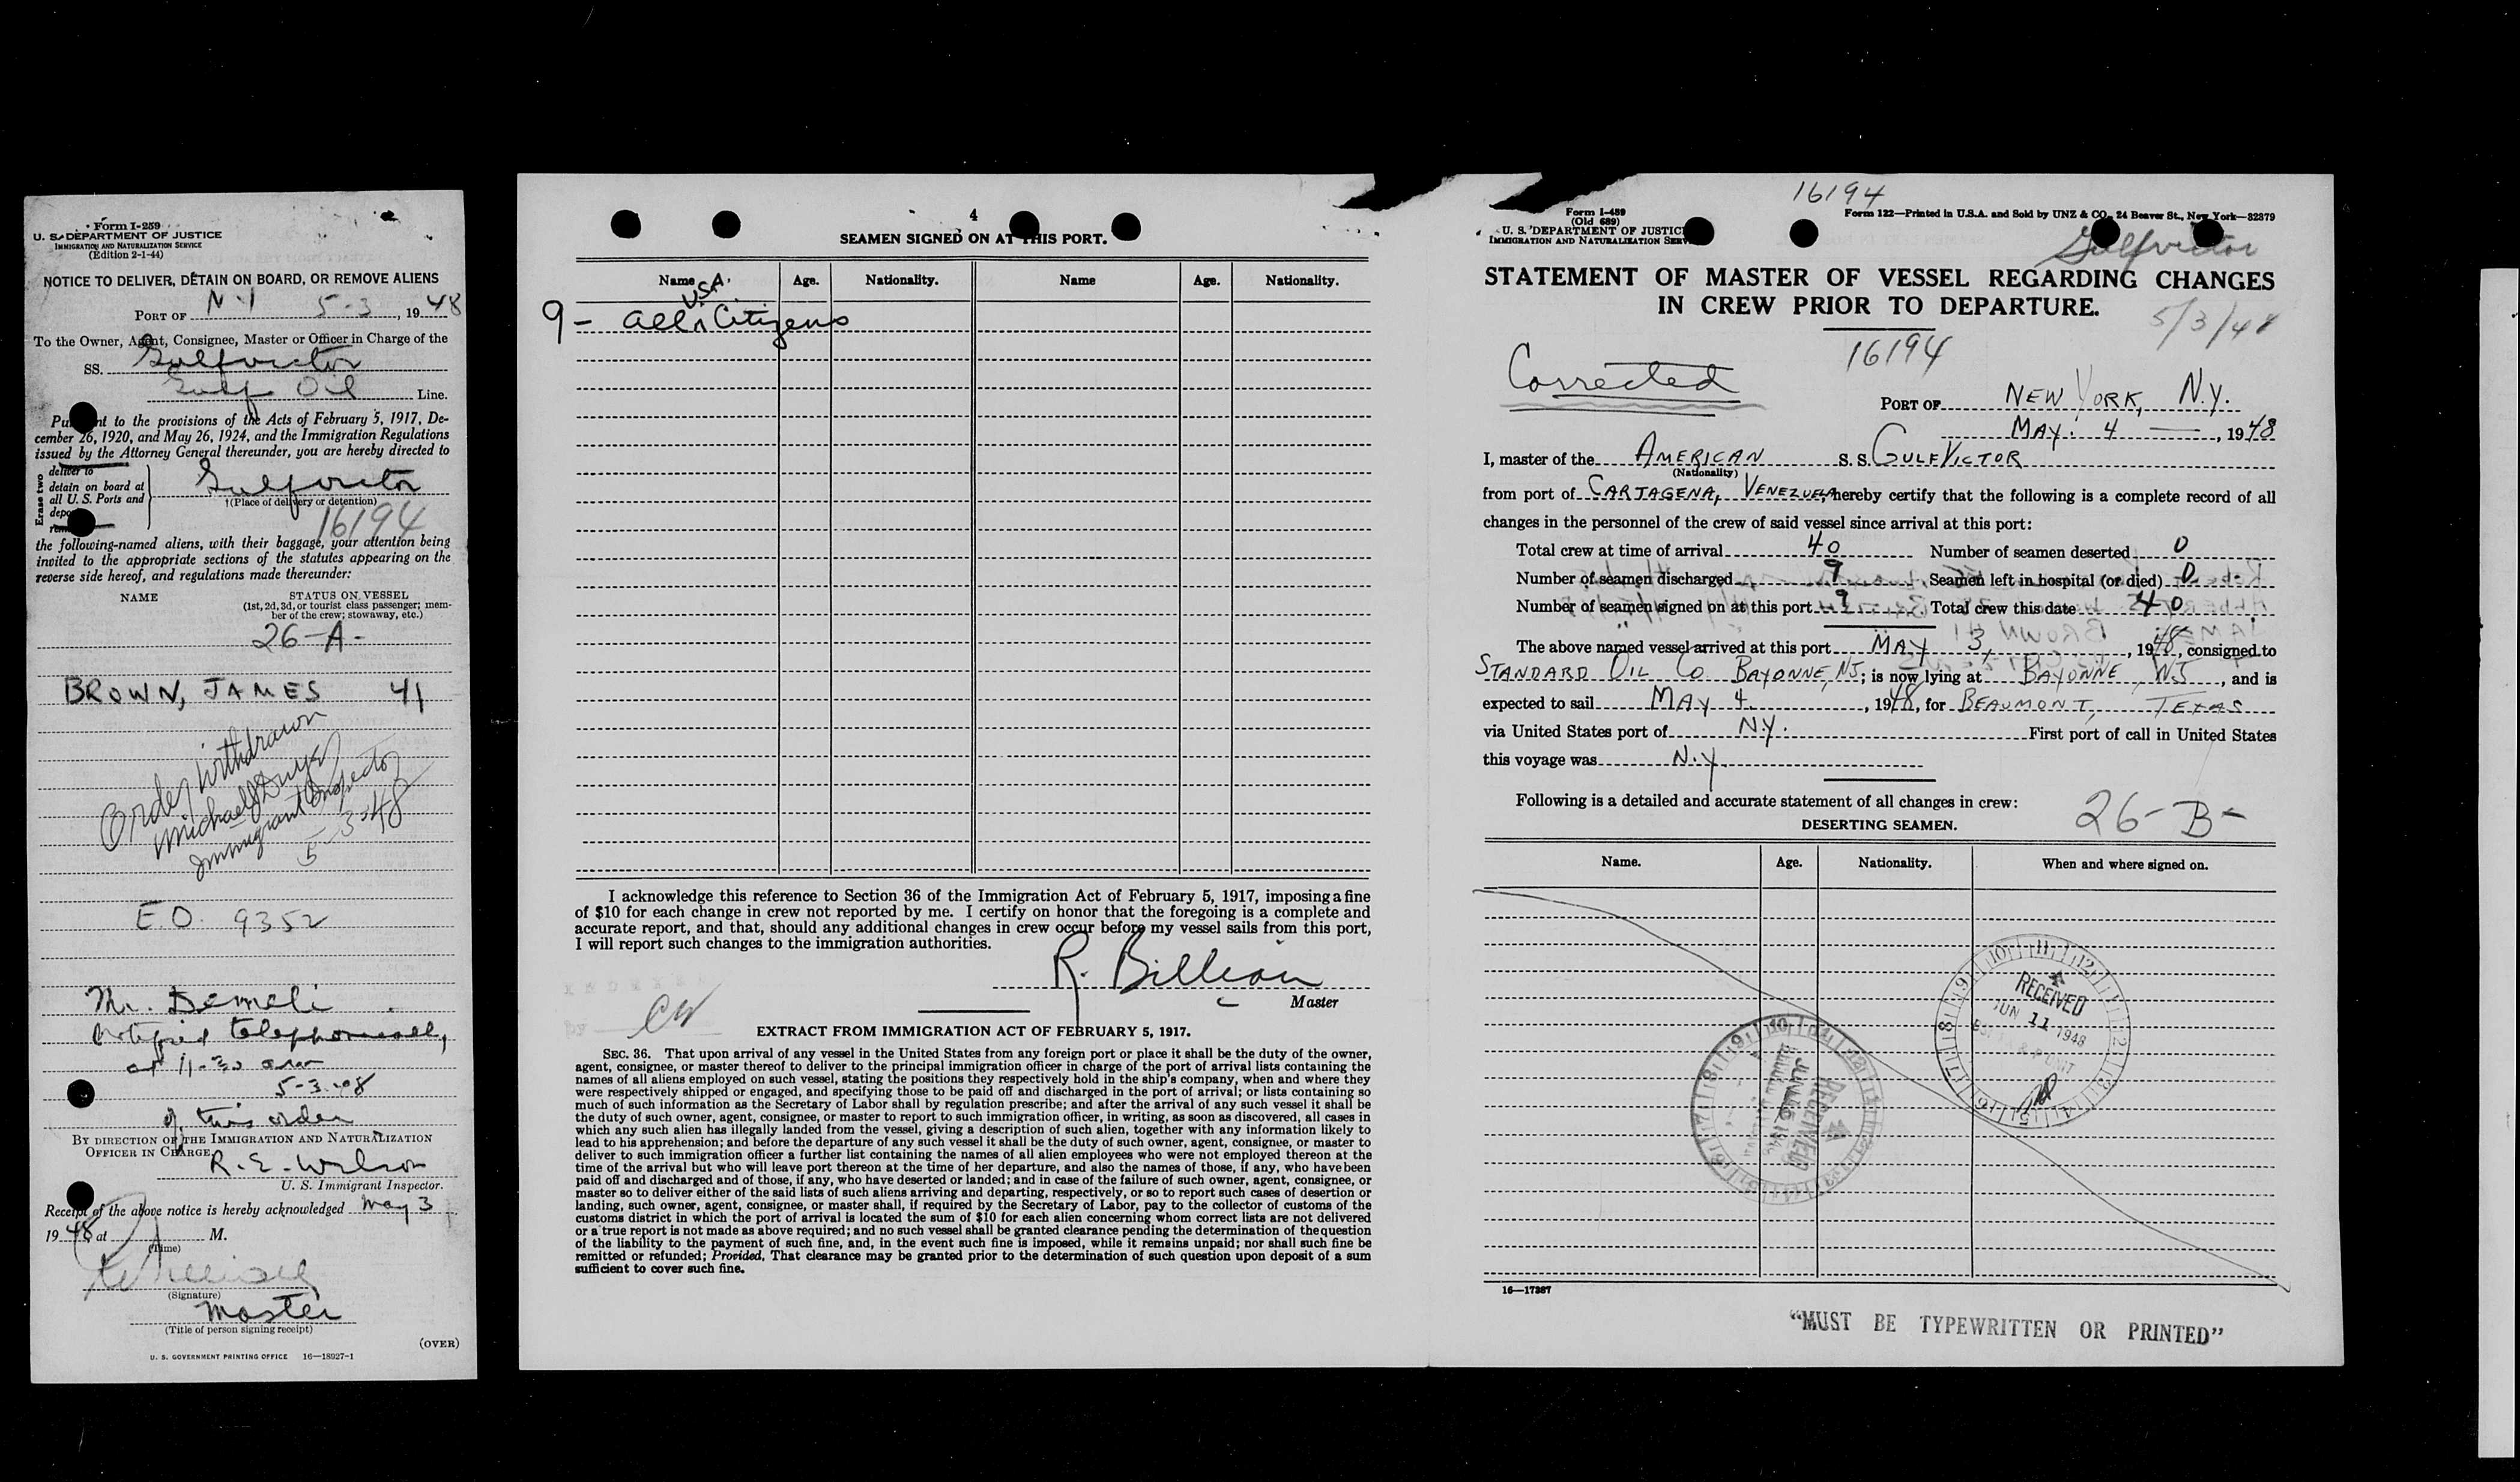 Form I-259
U. S. DEPARTMENT OF JUSTICE
IMMIGRATION AND NATURALIZATION SERVICE
(Edition 2-1-44)
NOTICE TO DELIVER, DETAIN ON BOARD, OR REMOVE ALIENS
PORT OF N Y 5-3, 1948
To the Owner, Agent, Consignee, Master or Officer in Charge of the
SS. Gulfvictor
Gulf Oil Line.
Pu nt to the provisions of the Acts of February 5, 1917, De-
cember 26, 1920, and May 26, 1924, and the Immigration Regulations
issued by the Attorney General thereunder, you are hereby directed to
Erase two
deliver to
detain on board at
all U. S. Ports and
depo
Gulfvictor
†(Place of delivery or detention)
16194
the following-named aliens, with their baggage, your attention being
invited to the appropriate sections of the statutes appearing on the
reverse side hereof, and regulations made thereunder:
NAME STATUS ON VESSEL
(1st, 2d, 3d, or tourist class passenger; mem-
ber of the crew; stowaway, etc.)
26-A-
BROWN, JAMES 41
Order Withdrawn
Michael J Dwyer
Immigrant Inspector
5-3-48
E.O. 9352
Mr. Demeli
Notified telephonically,
at 11-30 am
5-3-48
of this order
BY DIRECTION OF THE IMMIGRATION AND NATURALIZATION
OFFICER IN CHARGE
R. E. Wilson
U. S. Immigrant Inspector.
Receipt of the above notice is hereby acknowledged May 3
1948 at M.
(Time)
(Signature)
Master
(Title of person signing receipt)
(OVER)
U. S. GOVERNMENT PRINTING OFFICE 16—18927-1
4
SEAMEN SIGNED ON AT THIS PORT.
Name Age. Nationality. Name Age. Nationality.
USA.
9 - all ^ Citizens
I acknowledge this reference to Section 36 of the Immigration Act of February 5, 1917, imposing a fine
of $10 for each change in crew not reported by me. I certify on honor that the foregoing is a complete and
accurate report, and that, should any additional changes in crew occur before my vessel sails from this port,
I will report such changes to the immigration authorities.
R. Billion
Master
By CW
EXTRACT FROM IMMIGRATION ACT OF FEBRUARY 5, 1917.
SEC. 36. That upon arrival of any vessel in the United States from any foreign port or place it shall be the duty of the owner,
agent, consignee, or master thereof to deliver to the principal immigration officer in charge of the port of arrival lists containing the
names of all aliens employed on such vessel, stating the positions they respectively hold in the ship's company, when and where they
were respectively shipped or engaged, and specifying those to be paid off and discharged in the port of arrival; or lists containing so
much of such information as the Secretary of Labor shall by regulation prescribe; and after the arrival of any such vessel it shall be
the duty of such owner, agent, consignee, or master to report to such immigration officer, in writing, as soon as discovered, all cases in
which any such alien has illegally landed from the vessel, giving a description of such alien, together with any information likely to
lead to his apprehension; and before the departure of any such vessel it shall be the duty of such owner, agent, consignee, or master to
deliver to such immigration officer a further list containing the names of all alien employees who were not employed thereon at the
time of the arrival but who will leave port thereon at the time of her departure, and also the names of those, if any, who have been
paid off and discharged and of those, if any, who have deserted or landed; and in case of the failure of such owner, agent, consignee, or
master so to deliver either of the said lists of such aliens arriving and departing, respectively, or so to report such cases of desertion or
landing, such owner, agent, consignee, or master shall, if required by the Secretary of Labor, pay to the collector of customs of the
customs district in which the port of arrival is located the sum of $10 for each alien concerning whom correct lists are not delivered
or a true report is not made as above required; and no such vessel shall be granted clearance pending the determination of the question
of the liability to the payment of such fine, and, in the event such fine is imposed, while it remains unpaid; nor shall such fine be
remitted or refunded; Provided, That clearance may be granted prior to the determination of such question upon deposit of a sum
sufficient to cover such fine.
16194
Form I-489
(Old 689)
U. S. DEPARTMENT OF JUSTIC
IMMIGRATION AND NATURALIZATION SERV
Form 122—Printed in U.S.A. and Sold by UNZ & CO., 24 Beaver St., New York—32379
Gulfvictor
STATEMENT OF MASTER OF VESSEL REGARDING CHANGES
IN CREW PRIOR TO DEPARTURE.
5/3/48
16194
Corrected
PORT OF NEW YORK, N.Y.
MAY 4, 1948
I, master of the AMERICAN S. S. GULFVICTOR
(Nationality)
from port of CARTAGENA, VENEZUELA, hereby certify that the following is a complete record of all
changes in the personnel of the crew of said vessel since arrival at this port:
Total crew at time of arrival 40 Number of seamen deserted 0
Number of seamen discharged 9 Seamen left in hospital (or died) 0
Number of seamen signed on at this port 9 Total crew this date 40
The above named vessel arrived at this port MAY 3, 1948, consigned to
STANDARD OIL CO BAYONNE, NJ; is now lying at BAYONNE, NJ, and is
expected to sail MAY 4, 1948, for BEAUMONT, TEXAS
via United States port of N.Y. First port of call in United States
this voyage was N.Y.
Following is a detailed and accurate statement of all changes in crew:
26-B-
DESERTING SEAMEN.
Name. Age. Nationality. When and where signed on.
RECEIVED
JUN 11 1948
RECEIVED
16—17387
"MUST BE TYPEWRITTEN OR PRINTED"